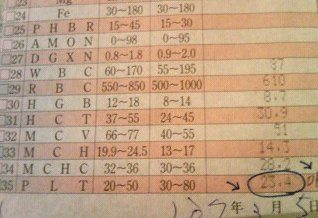 24 Fe 30~180 30~180
25 P H B R 15~45 15~30
26 A M O N 0~98 0~95
27 D G X N 0.8~1.8 0.9~2.0
28 W B C 60~170 55~195 87
29 R B C 550~850 500~1000 610
30 H G B 12~18 8~14 8.7
31 H C T 37~55 24~45 30.9
32 M C V 66~77 40~55 51
33 M C H 19.9~24.5 13~17 14.3
34 M C H C 32~36 30~36 28.2
35 P L T 20~50 30~80 23.4
年 月 日